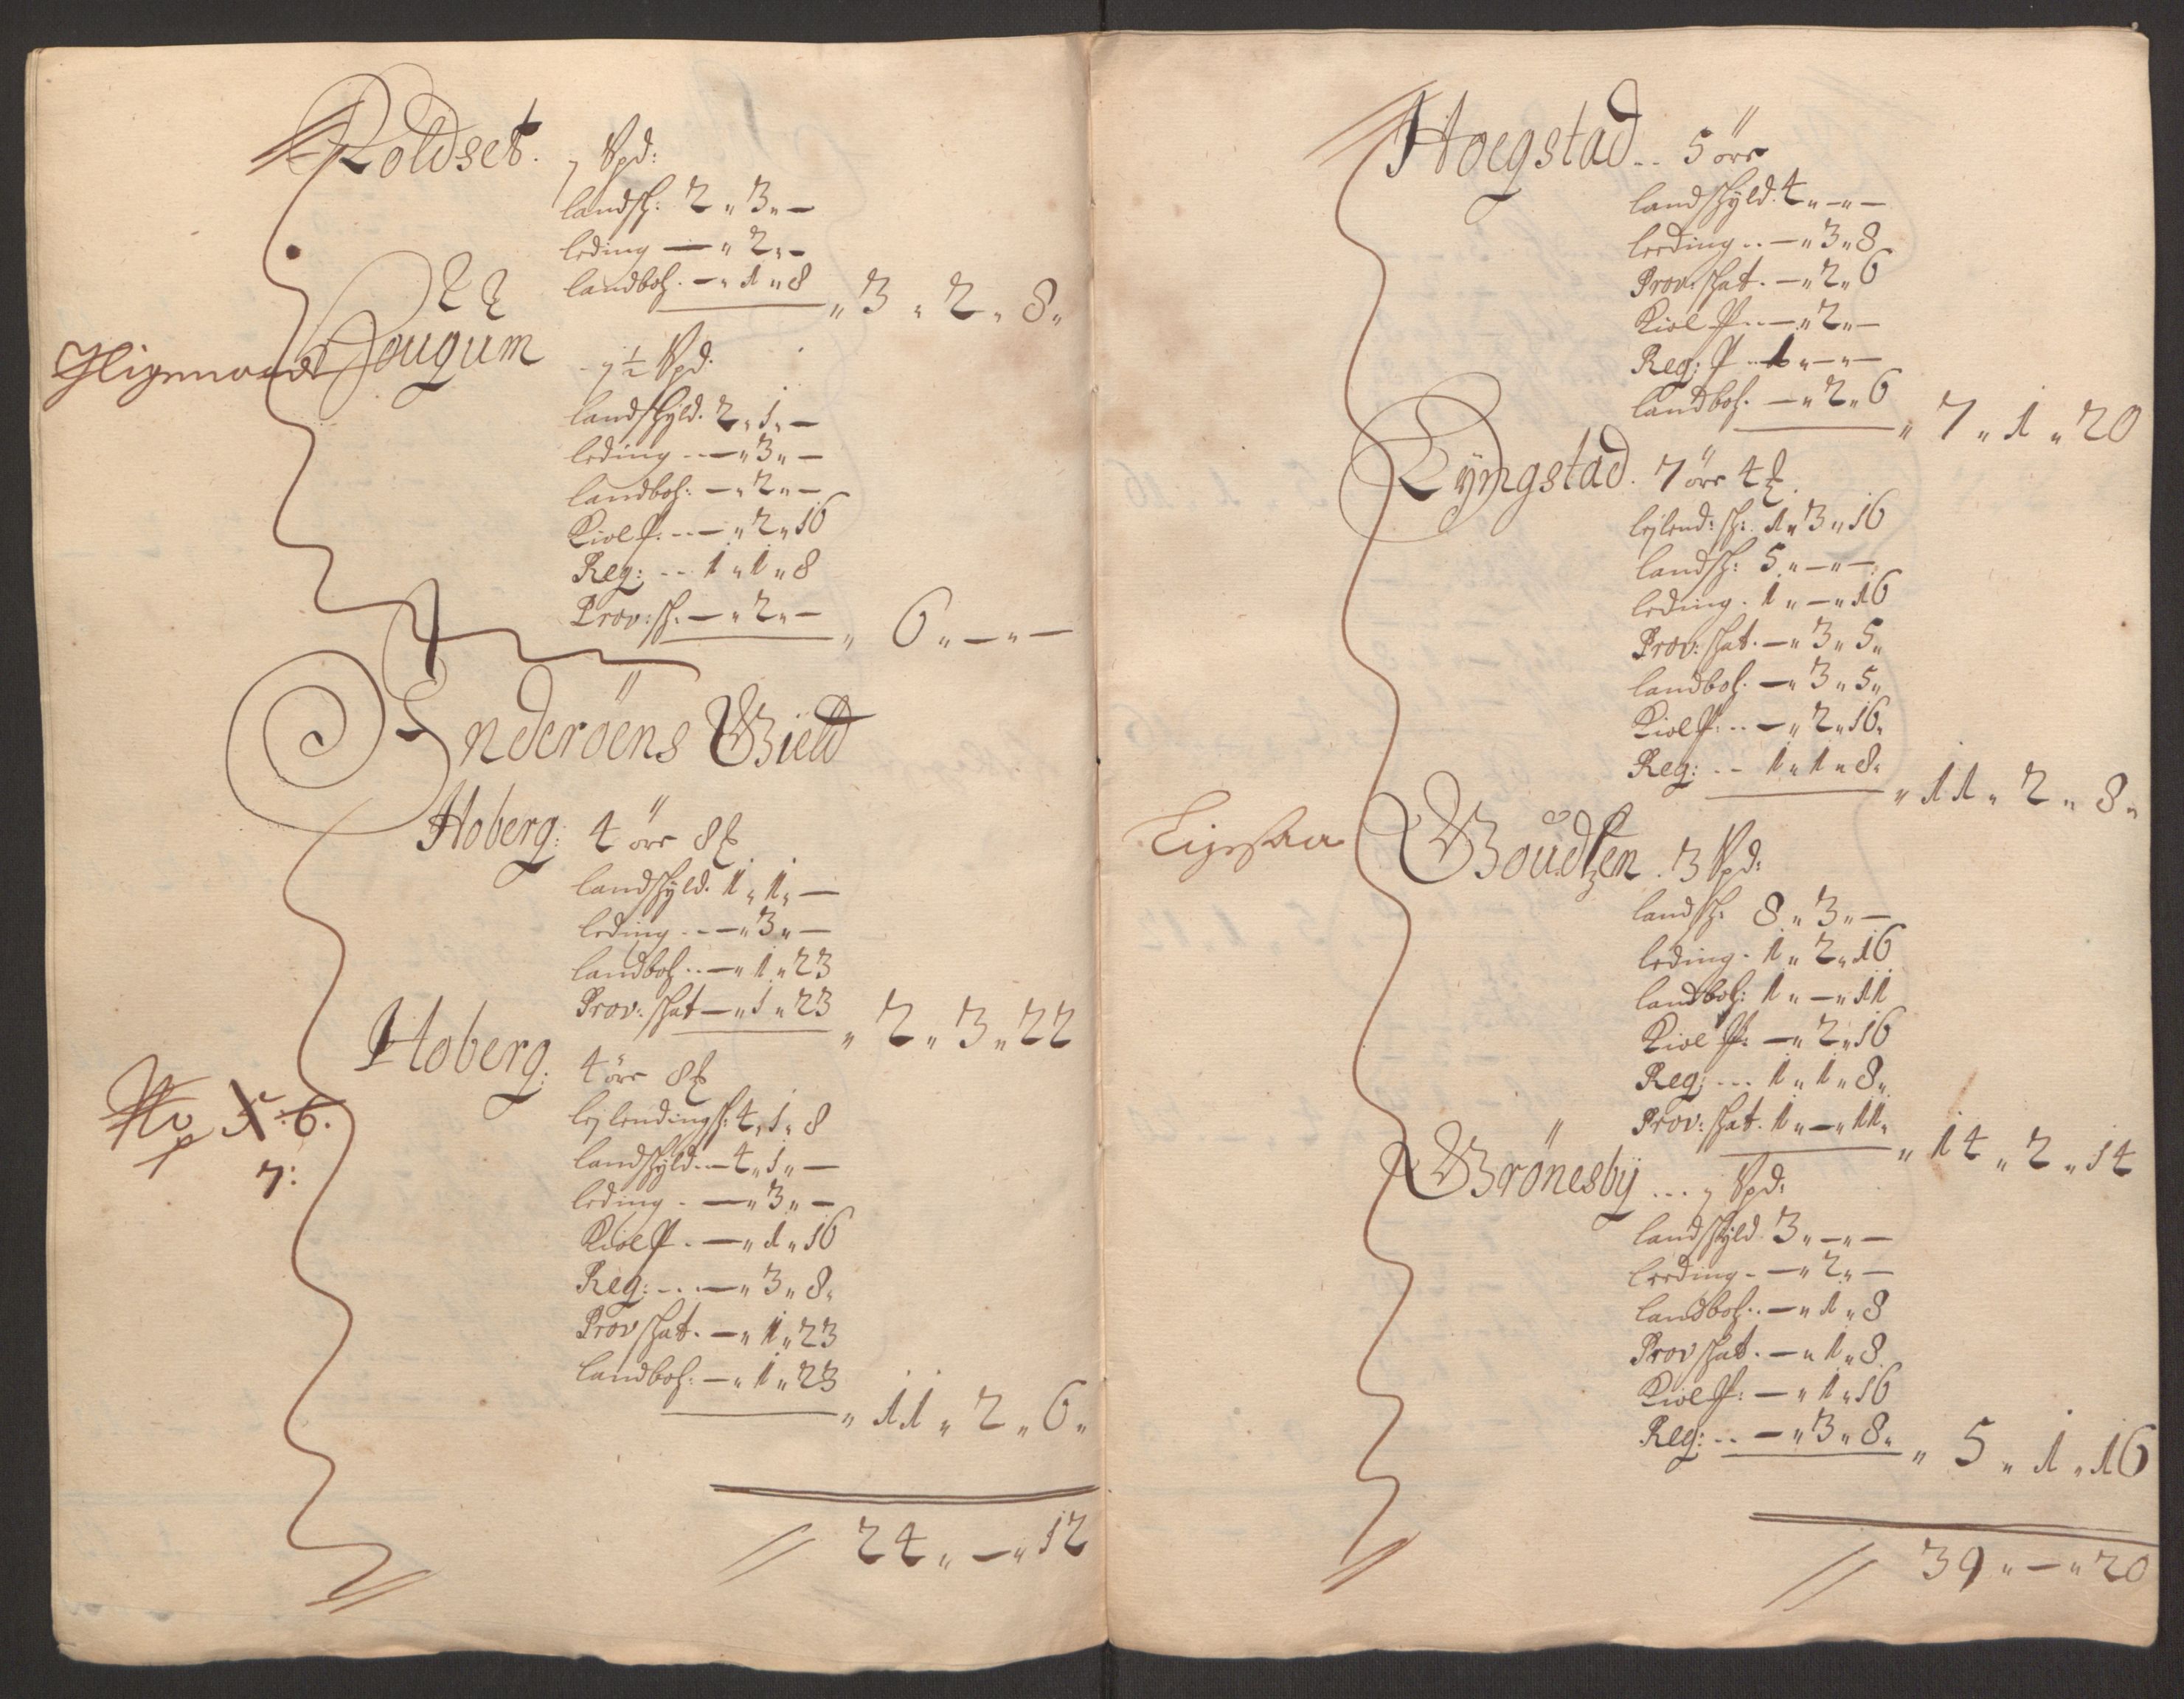 Roldset. 1 Spd:
landsk: 2 „ 3 „ —
leding — „ 2 „ —
landboh. — „ 1 „ 8 „ 3 „ 2 „ 8 „
Hougum - 1 ½ Spd.
landskyld. 2 „ 1 „ —
leding --- „ 3 „ —
landboh: — „ 2 „ —
Kiol P. --- „ 2 „ 16
Reg: -- 1 „ 1 „ 8
Prov: sk. — „ 2 „ — „ 6 „ — „ —
Inderöens Gield
Hoberg: 4 öre 8
landskyld. 1 „ 1 „ —
leding --- „ 3 „ —
landboh.. — „ 1 „ 23
Prov: skat — „ 1 „ 23 „ 2 „ 3 „ 22
Hoberg: 4 öre 8
No 5: 6.
7:
lejlendingsk: 4 „ 1 „ 8
landskyld.. — 4 „ 1 „ —
leding - — „ 3 „ —
Kiol P. — „ 1 „ 16
Reg: -- — „ 3 „ 8 „
Prov skat. — „ 1 „ 23
landboh: — „ 1 „ 23 „ 11 „ 2 „ 6 „
// 24 „ — „ 12
Hoegstad .. 5 öre
landskyld. 4 „ — „ —
leeding .. — „ 3 „ 8
Prov: skat. — „ 2 „ 6
Kiol P .. — „ 2 „ —
Reg: P .. 1 „ — „ —
landboh. — „ 2 „ 6 „ 7 „ 1 „ 20
Lyngstad. 7 öre 4
lejlend: sk: 1 „ 3 „ 16
landsk: 5 „ — „ —
leding . 1 „ — „ 16
Prov: skat. — „ 3 „ 5 „
landboh. — „ 3 „ 5 „
Kiol P. .. — „ 2 „ 16 „
Reg: .. - 1 „ 1 „ 8 „ „ 11 „ 2 „ 8 „
3 Spd:
landsk: 8 „ 3 „ —
leding . 1 „ 2 „ 16
landboh: 1 „ — „ 11
Kiol P: — „ 2 „ 16
Reg: --- 1 „ 1 „ 8 „
Prov: skat. 1 „ — „ 11 „ „ 14 „ 2 „ 14
Grönesby ... 1 Spd:
landskyld. 3 „ — „ —
leeding - — „ 2 „ —
landboh.. — „ 1 „ 8
Prov skat. — „ 1 „ 8
Kiol P: — „ 1 „ 16
Reg: .. — „ 3 „ 8 „ „ 5 „ 1 „ 16
// 39 „ — „ 20